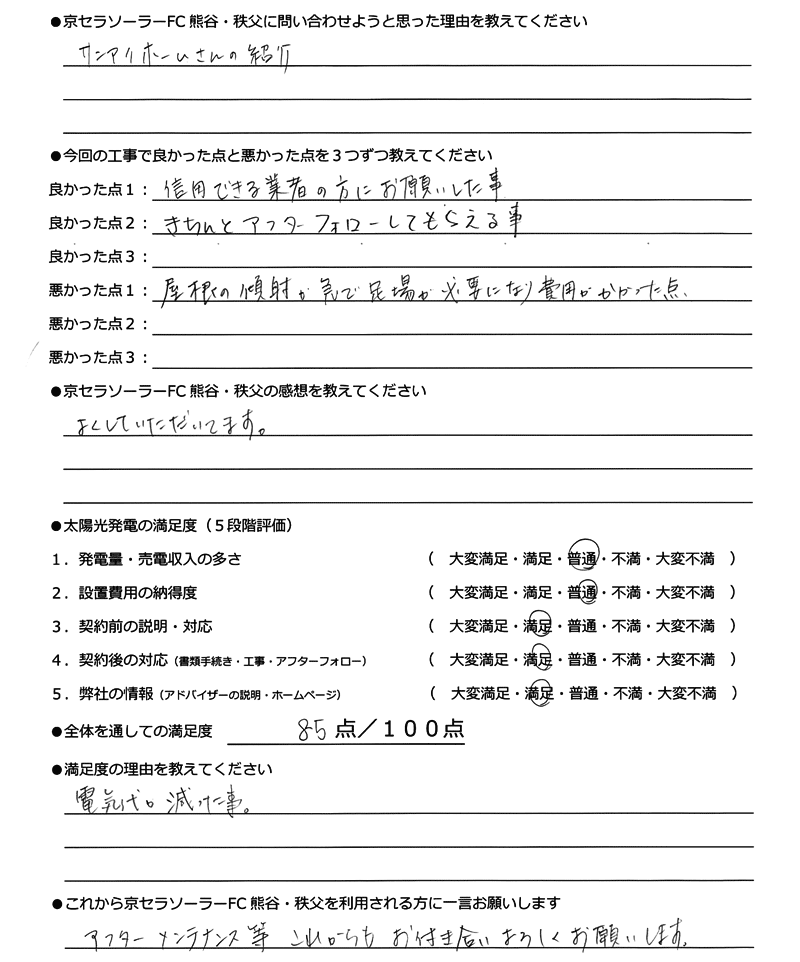 ●京セラソーラーFC 熊谷・秩父に問い合わせようと思った理由を教えてください
サンアイホームさんの紹介
●今回の工事で良かった点と悪かった点を３つずつ教えてください
良かった点１： 信用できる業者の方にお願いした事
良かった点２： きちんとアフターフォローしてもらえる事
良かった点３：
悪かった点１： 屋根の傾射が急で足場が必要になり費用がかかった点、
悪かった点２：
悪かった点３：
●京セラソーラーFC 熊谷・秩父の感想を教えてください
よくしていただいてます。
●太陽光発電の満足度（５段階評価）
１．発電量・売電収入の多さ （ 大変満足・満足・普通・不満・大変不満 ）
２．設置費用の納得度 （ 大変満足・満足・普通・不満・大変不満 ）
３．契約前の説明・対応 （ 大変満足・満足・普通・不満・大変不満 ）
４．契約後の対応（書類手続き・工事・アフターフォロー） （ 大変満足・満足・普通・不満・大変不満 ）
５．弊社の情報（アドバイザーの説明・ホームページ） （ 大変満足・満足・普通・不満・大変不満 ）
●全体を通しての満足度 85 点／１００点
●満足度の理由を教えてください
電気代の減った事。
●これから京セラソーラーFC 熊谷・秩父を利用される方に一言お願いします
アフターメンテナンス等 これからも お付き合い よろしくお願いします。